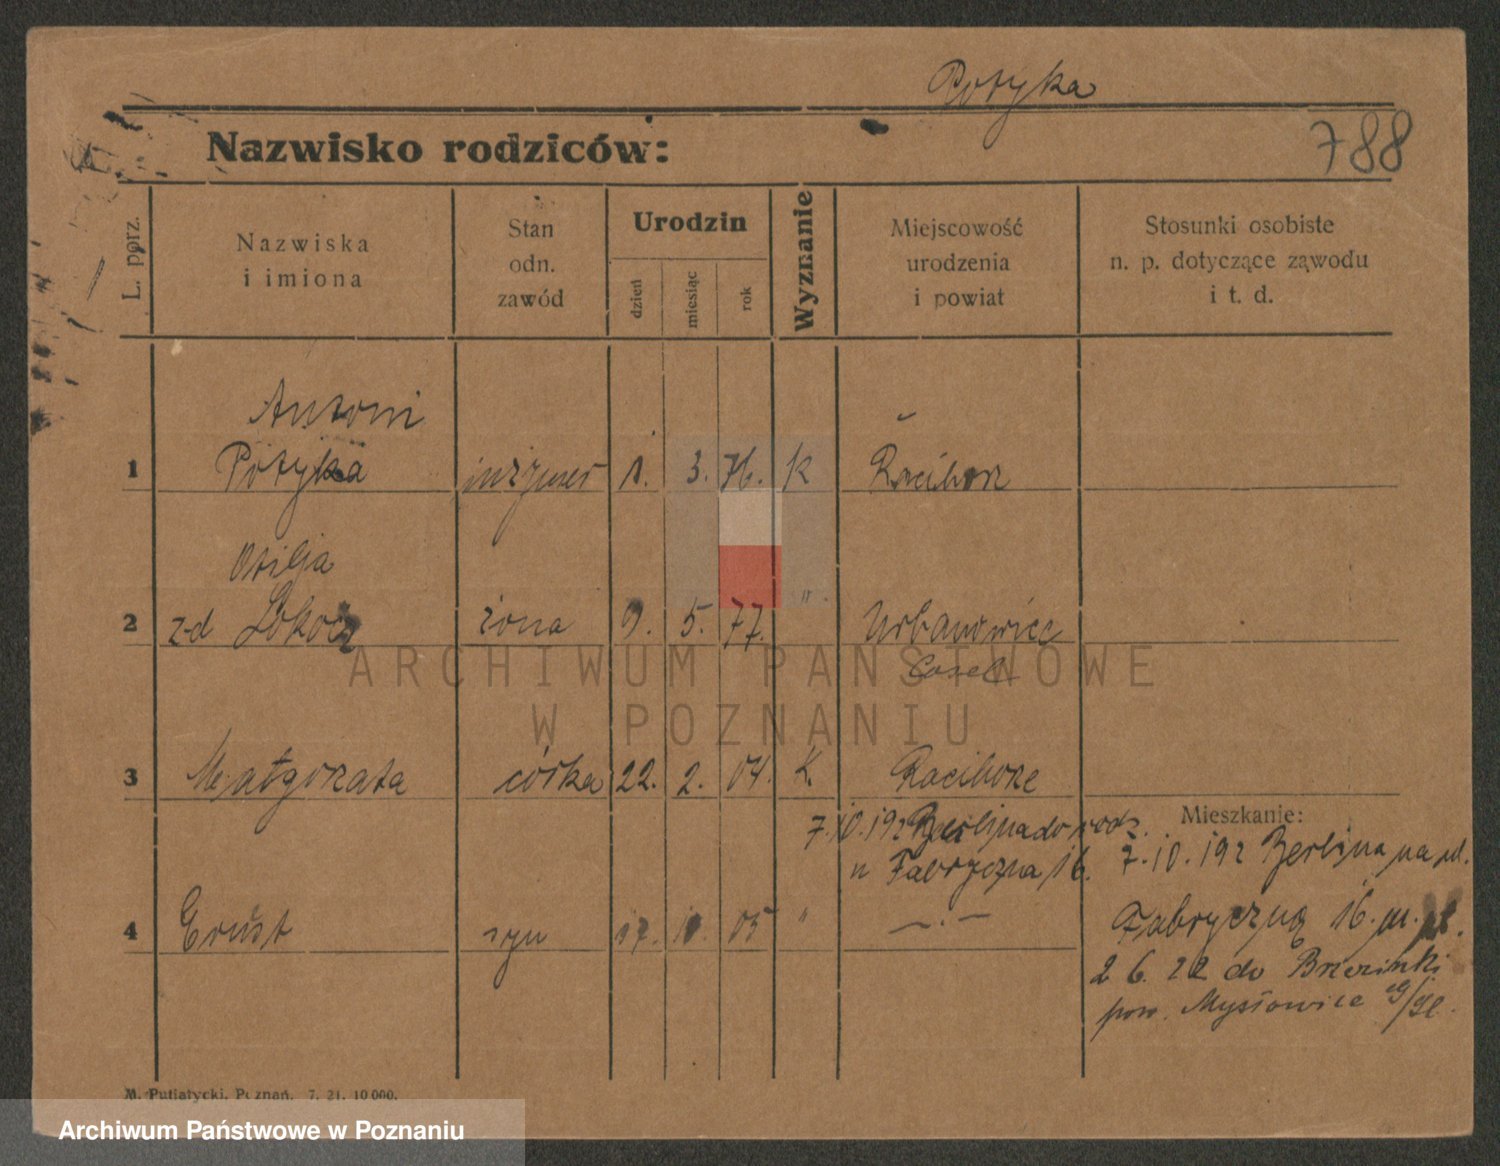 Potyka
Nazwisko rodziców:
788
L. porz.
Nazwiska
i imiona
Stan
odn.
zawód
Urodzin
dzień
miesiąc
rok
Wyznanie
Miejscowość
urodzenia
i powiat
Stosunki osobiste
n. p. dotyczące zawodu
i t. d.
Antoni
1 Potyka 1. 3. 76. k
Otilja
2 z d żona 9. 5. 77. "
Urbanowice
Cosel
3 Małgorzata córka 22. 2. 04. k. Raciborz
Mieszkanie:
7.10.192 Berlina do rodz.
Fabryczna 16.
7.10.192 Berlina na ul.
4 Ernst syn 17. 05 " —.—
Fabryczną 16.
2 6. 22 do Brzezinki
pow. Mysłowice
M. Putiatycki, Poznań. 7. 21. 10 000.
ARCHIWUM PAŃSTWOWE
W POZNANIU
Archiwum Państwowe w Poznaniu